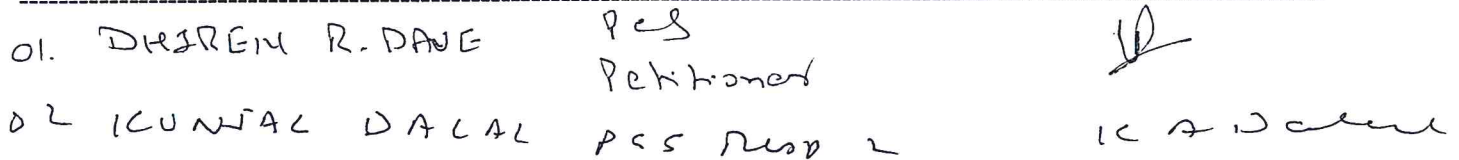 01. DHIREN R. DAVE PCS
Petitioner
02 KUNJAL DALAL PCS Resp 2 K A Dalal